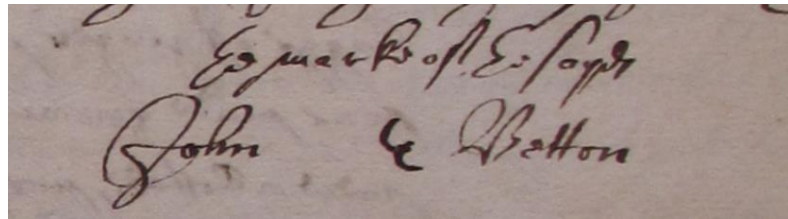 The marke of the sayde
John Vetton